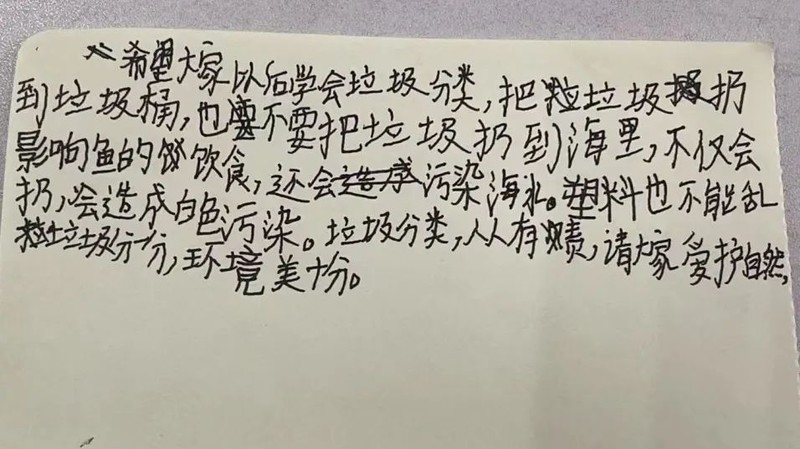 希望大家以后学会垃圾分类,把垃圾扔
到垃圾桶,也不要把垃圾扔到海里,不仅会
影响鱼的饮食,还会污染海水。塑料也不能乱
扔,会造成白色污染。垃圾分类,人人有责,请大家爱护自然,
垃圾分一分,环境美十分。